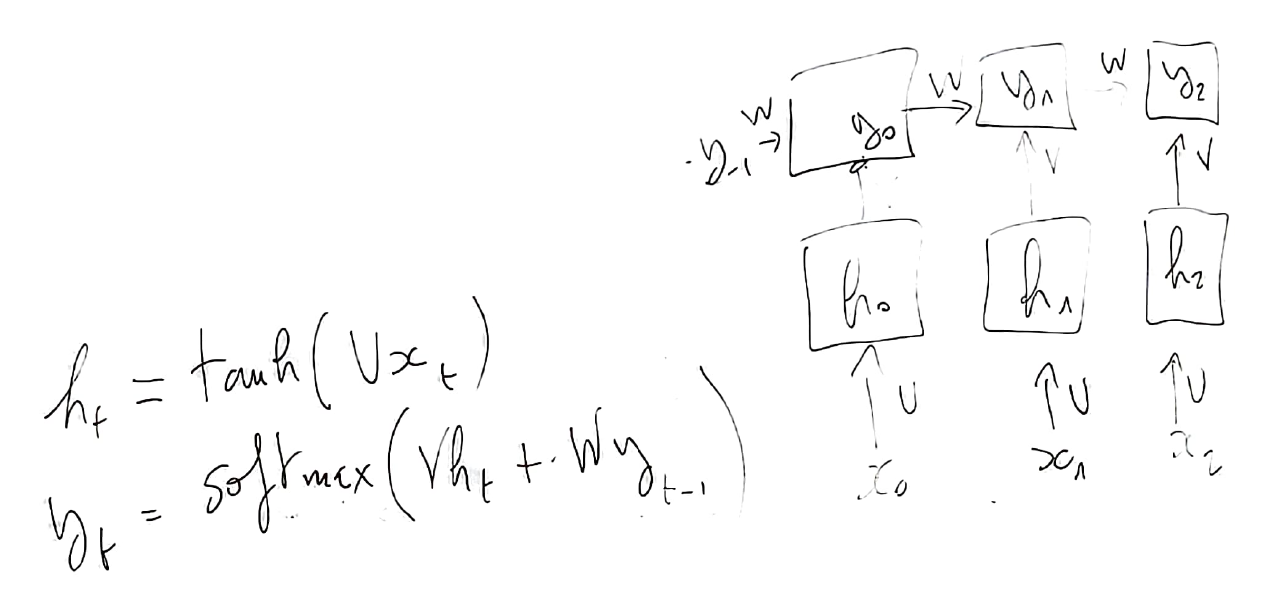 W W W
y₋₁ → y₀ → y₁ → y₂
V V
h₀ h₁ h₂
U U U
x₀ x₁ x₂
hₜ = tanh(Uxₜ)
yₜ = softmax(Vhₜ + Wyₜ₋₁)